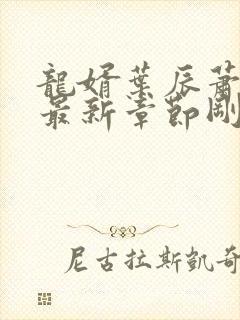 龍婿葉辰蕭
最新章節剛
尼古拉斯凱奇